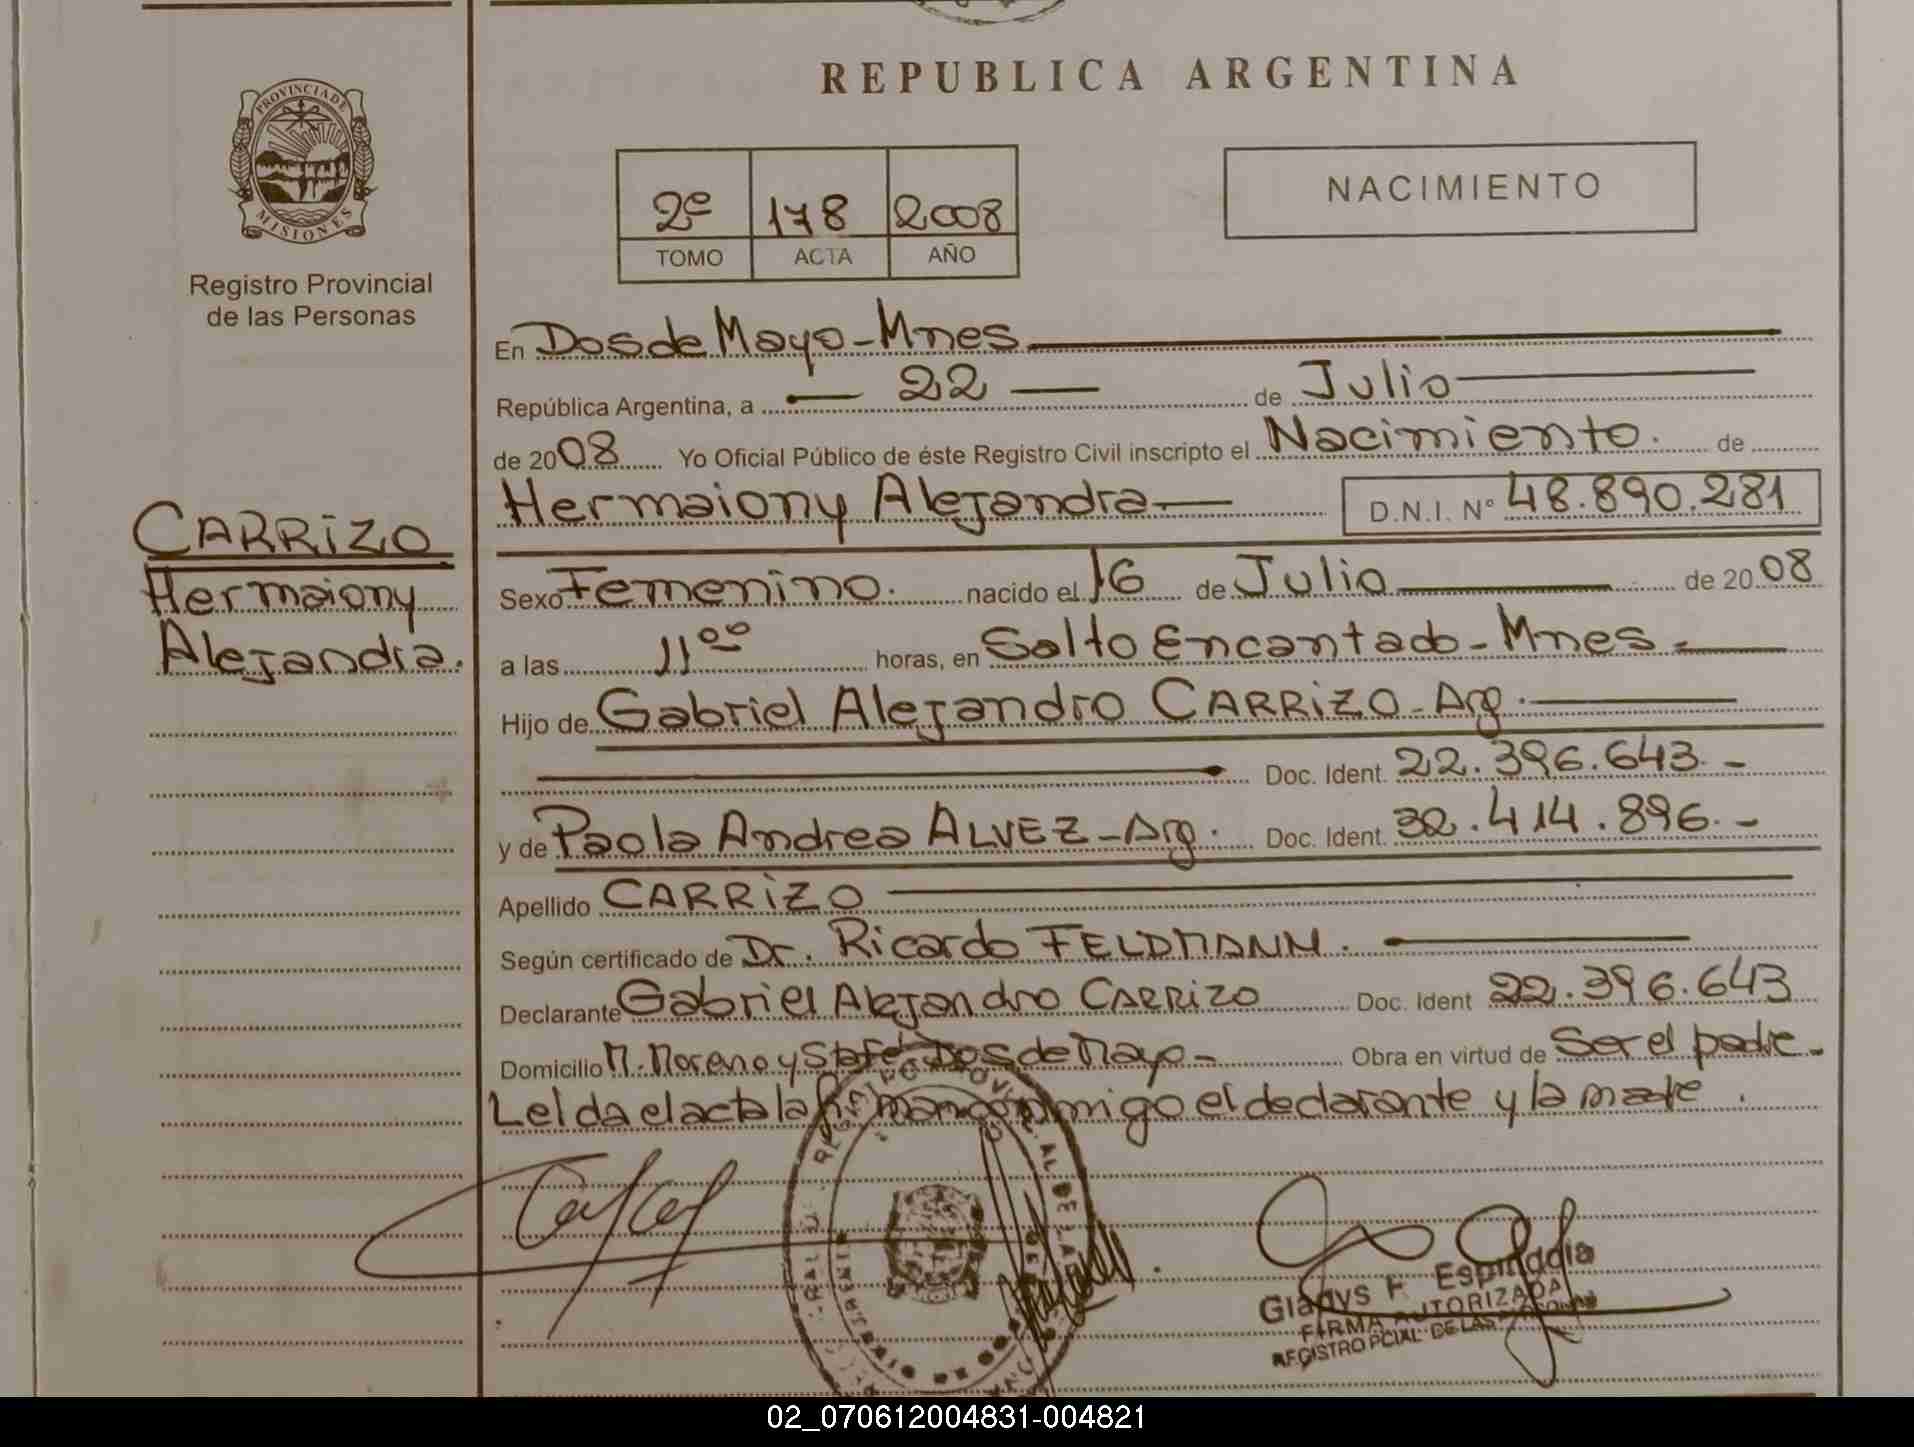 REPUBLICA ARGENTINA
PROVINCIA DE
MISIONES
Registro Provincial
de las Personas
2º 178 2008
TOMO ACTA AÑO
NACIMIENTO
En Dos de Mayo - Mnes
República Argentina, a 22 de Julio
de 2008 Yo Oficial Público de éste Registro Civil inscripto el Nacimiento. de
Hermaiony Alejandra D.N.I. Nº 48.890.281
CARRIZO
Hermaiony
Alejandra.
Sexo Femenino. nacido el 16 de Julio de 2008
a las 11⁰⁰ horas, en Salto Encantado - Mnes -
Hijo de Gabriel Alejandro CARRIZO - Arg.
Doc. Ident. 22.396.643 -
y de Paola Andrea ALVEZ - Arg. Doc. Ident. 32.414.896. -
Apellido CARRIZO
Según certificado de Dr. Ricardo FELDMANN.
Declarante Gabriel Alejandro CARRIZO Doc. Ident 22.396.643
Domicilio M. Moreno y Sta Fé, Dos de Mayo - Obra en virtud de Ser el padre -
Leída el acta la firman conmigo el declarante y la madre.
Gladys F. Espindola
FIRMA AUTORIZADA
REGISTRO PCIAL DE LAS
02_070612004831-004821